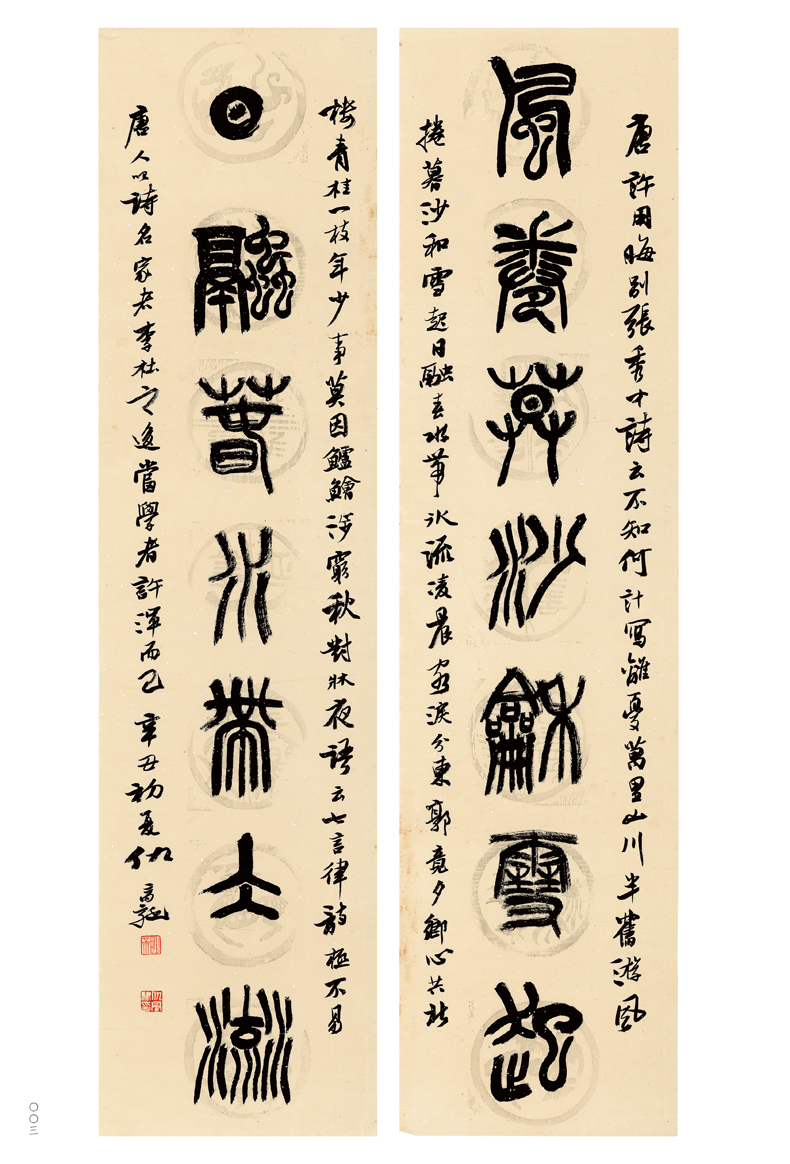 唐許用晦別張秀才詩云不知何計寫離憂萬里山川半舊游風
風卷莫沙龢雪起
捲暮沙和雪起日融春水帶冰流凌晨客淚分東郭竟夕鄉心共北
樓青桂一枝年少事莫因鱸鱠涉窮秋對牀夜語云七言律詩極不易
日融萅水帶仌流
唐人以詩名家者李杜之後當學者許渾而已 辛丑初夏仇高馳
〇〇三